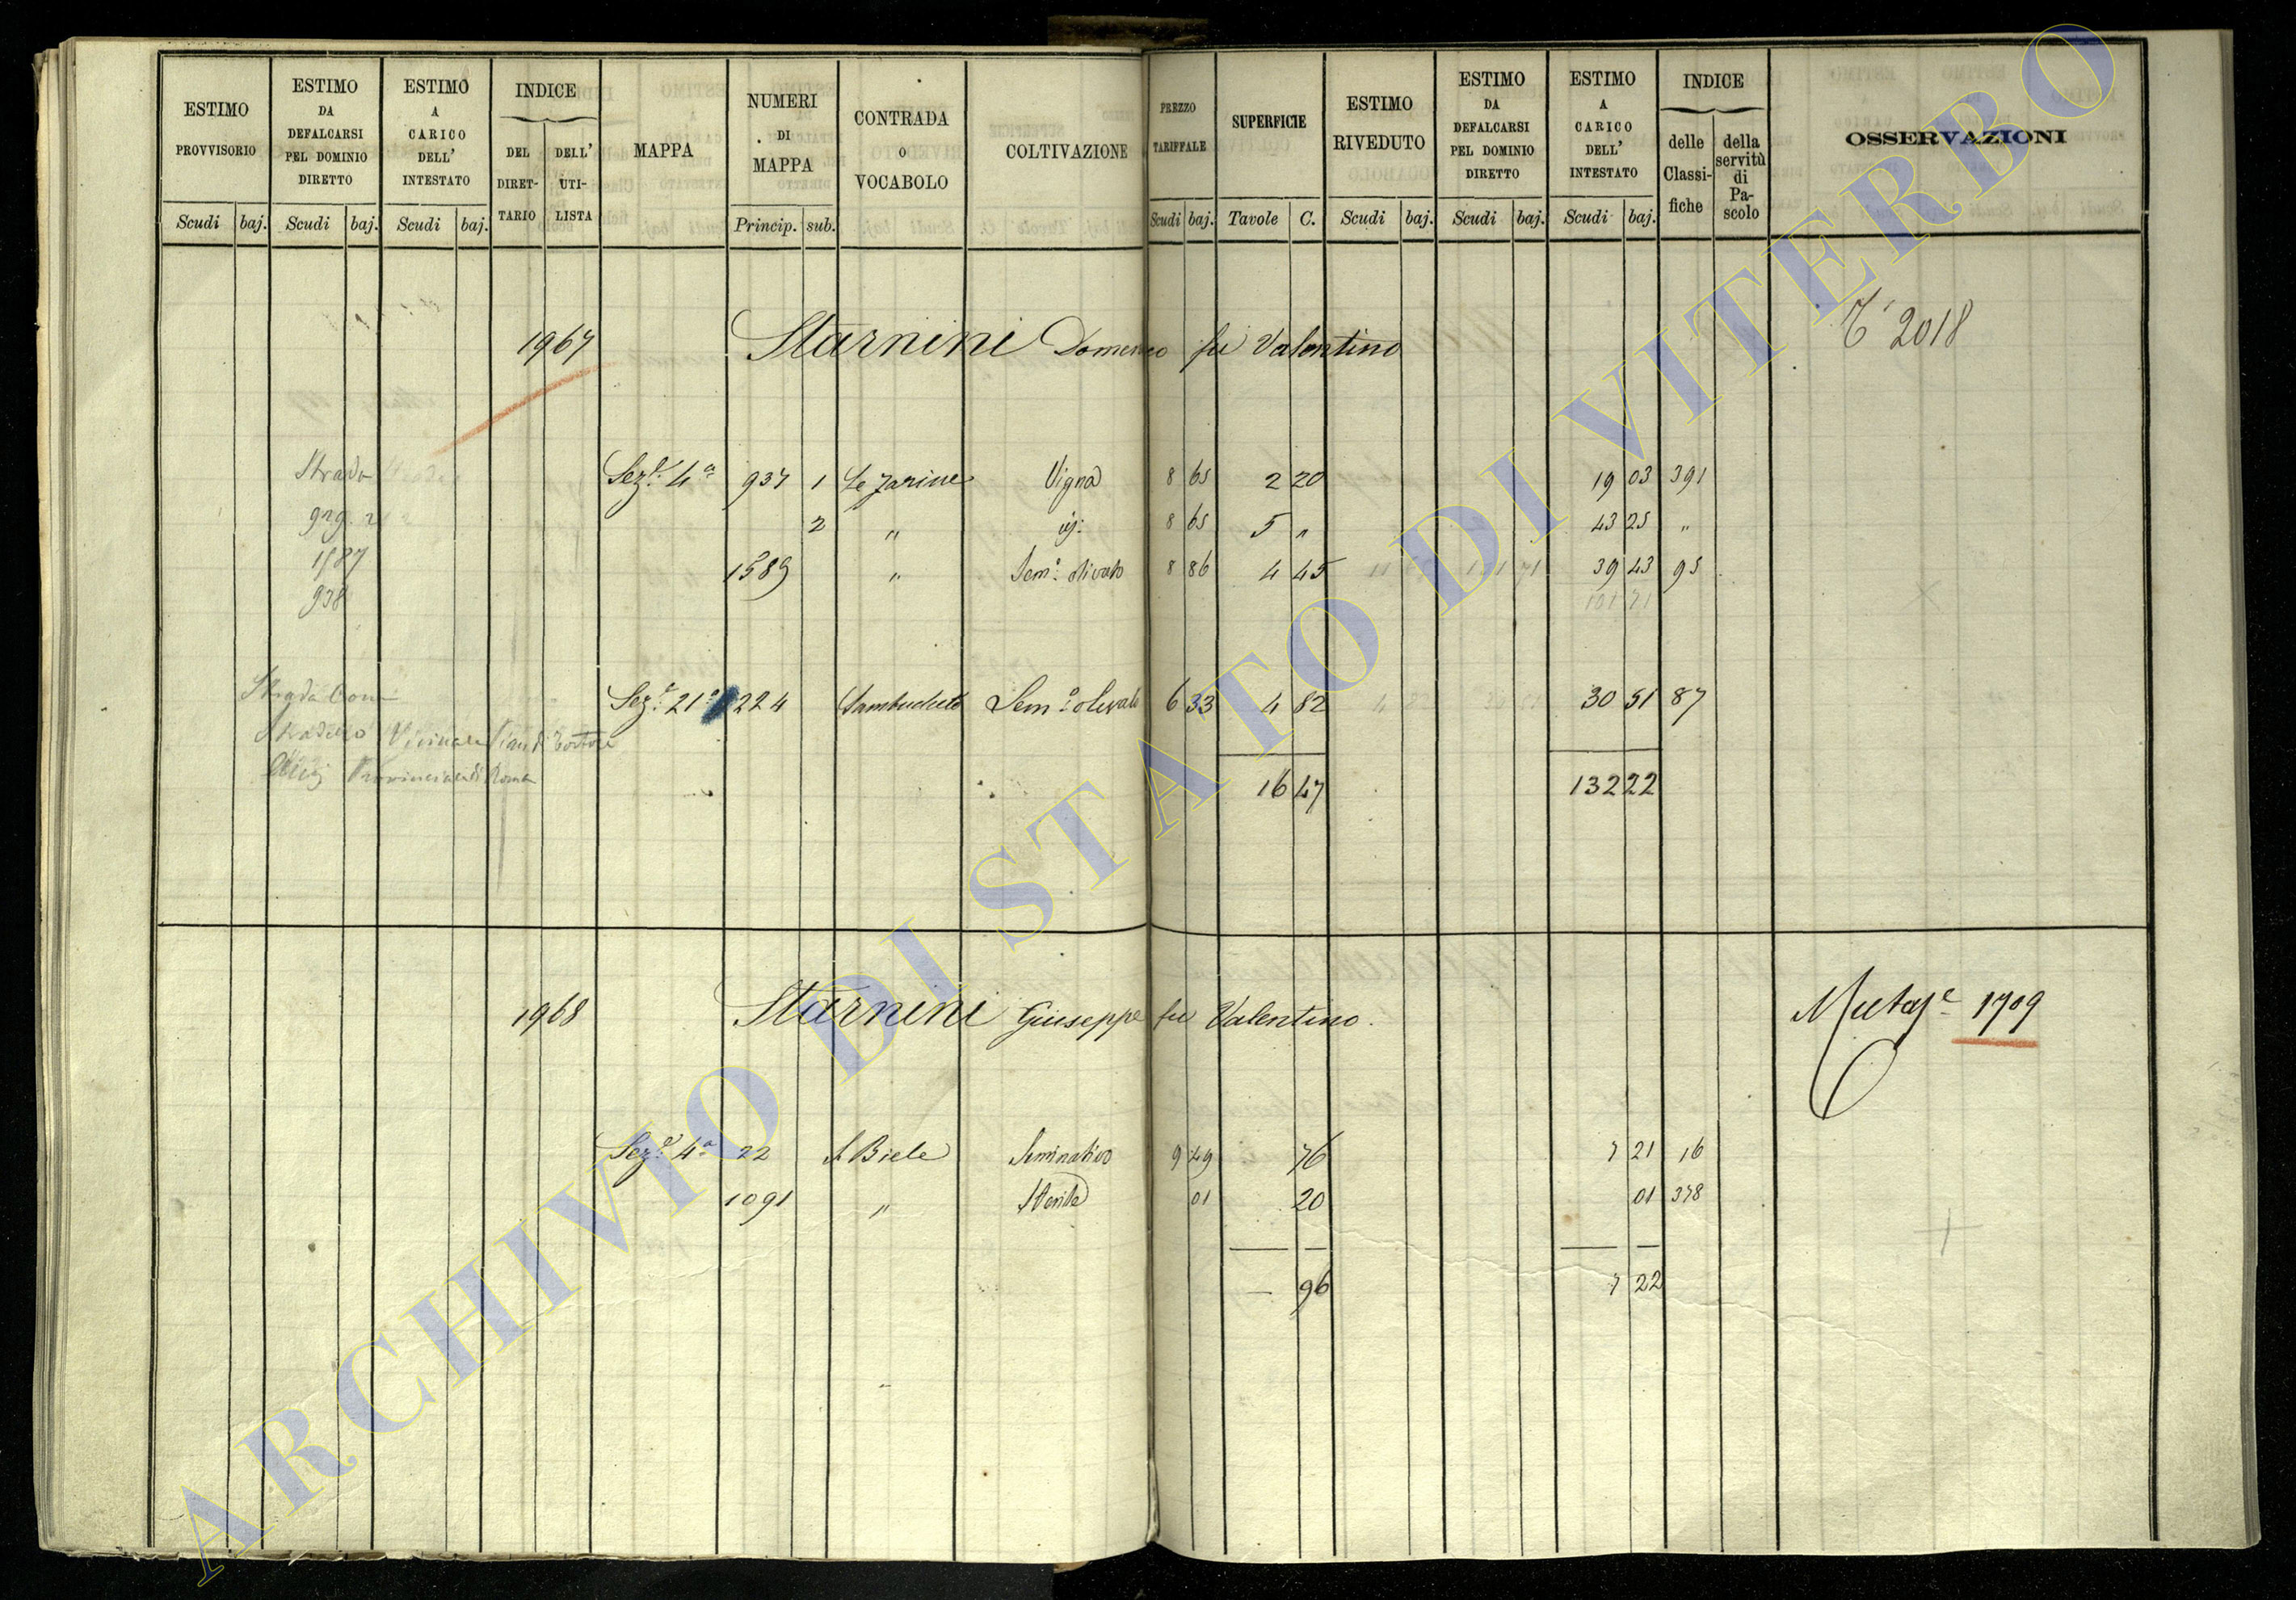 ESTIMO PROVVISORIO
ESTIMO DA DEFALCARSI PEL DOMINIO DIRETTO
ESTIMO A CARICO DELL' INTESTATO
INDICE
DEL DIRET-TARIO
DELL' UTI-LISTA
MAPPA
NUMERI DI MAPPA
CONTRADA O VOCABOLO
COLTIVAZIONE
PREZZO TARIFFALE
SUPERFICIE
ESTIMO RIVEDUTO
ESTIMO DA DEFALCARSI PEL DOMINIO DIRETTO
ESTIMO A CARICO DELL' INTESTATO
INDICE
delle Classi-fiche
della servitù di Pa-scolo
OSSERVAZIONI
Scudi baj. Scudi baj. Scudi baj. Princip. sub. Scudi baj. Tavole C. Scudi baj. Scudi baj. Scudi baj.
1967 Starnini Domenico fu Valentino 2018
Strada Sez.e 4a 937 1 Le Vigna 8 65 2 20 19 03 391
929. 2 2 " id: 8 65 5 " 43 25 "
1587 1589 " Sem.o olivato 8 86 4 45 39 43 95
938 101 71
Strada Com
Sez.e 21a 224 Sambucheto Sem.o olivato 6 33 4 82 30 51 87
Vicinale
Provinciale di Roma
16 47 132 22
1968 Starnini Giuseppe fu Valentino. 1709
Sez.e 4a 22 S Biele Seminativo 9 49 76 7 21 16
1091 " Sterile 01 20 01 378
— 96 7 22
ARCHIVIO DI STATO DI VITERBO